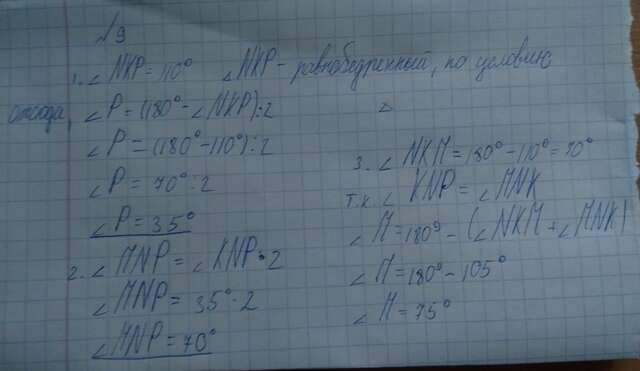 √9
1. ∠NKP = 110° ∠NKP - равнобедренный, по условию
отсюда, ∠P = (180° - ∠NKP) : 2
∠P = (180° - 110°) : 2
∠P = 70° : 2
∠P = 35°
2. ∠MNP = ∠KNP · 2
∠MNP = 35° · 2
∠MNP = 70°
△
3. ∠NKM = 180° - 110° = 70°
т.к. ∠KNP = ∠MNK
∠M = 180° - (∠NKM + ∠MNK)
∠M = 180° - 105°
∠M = 75°